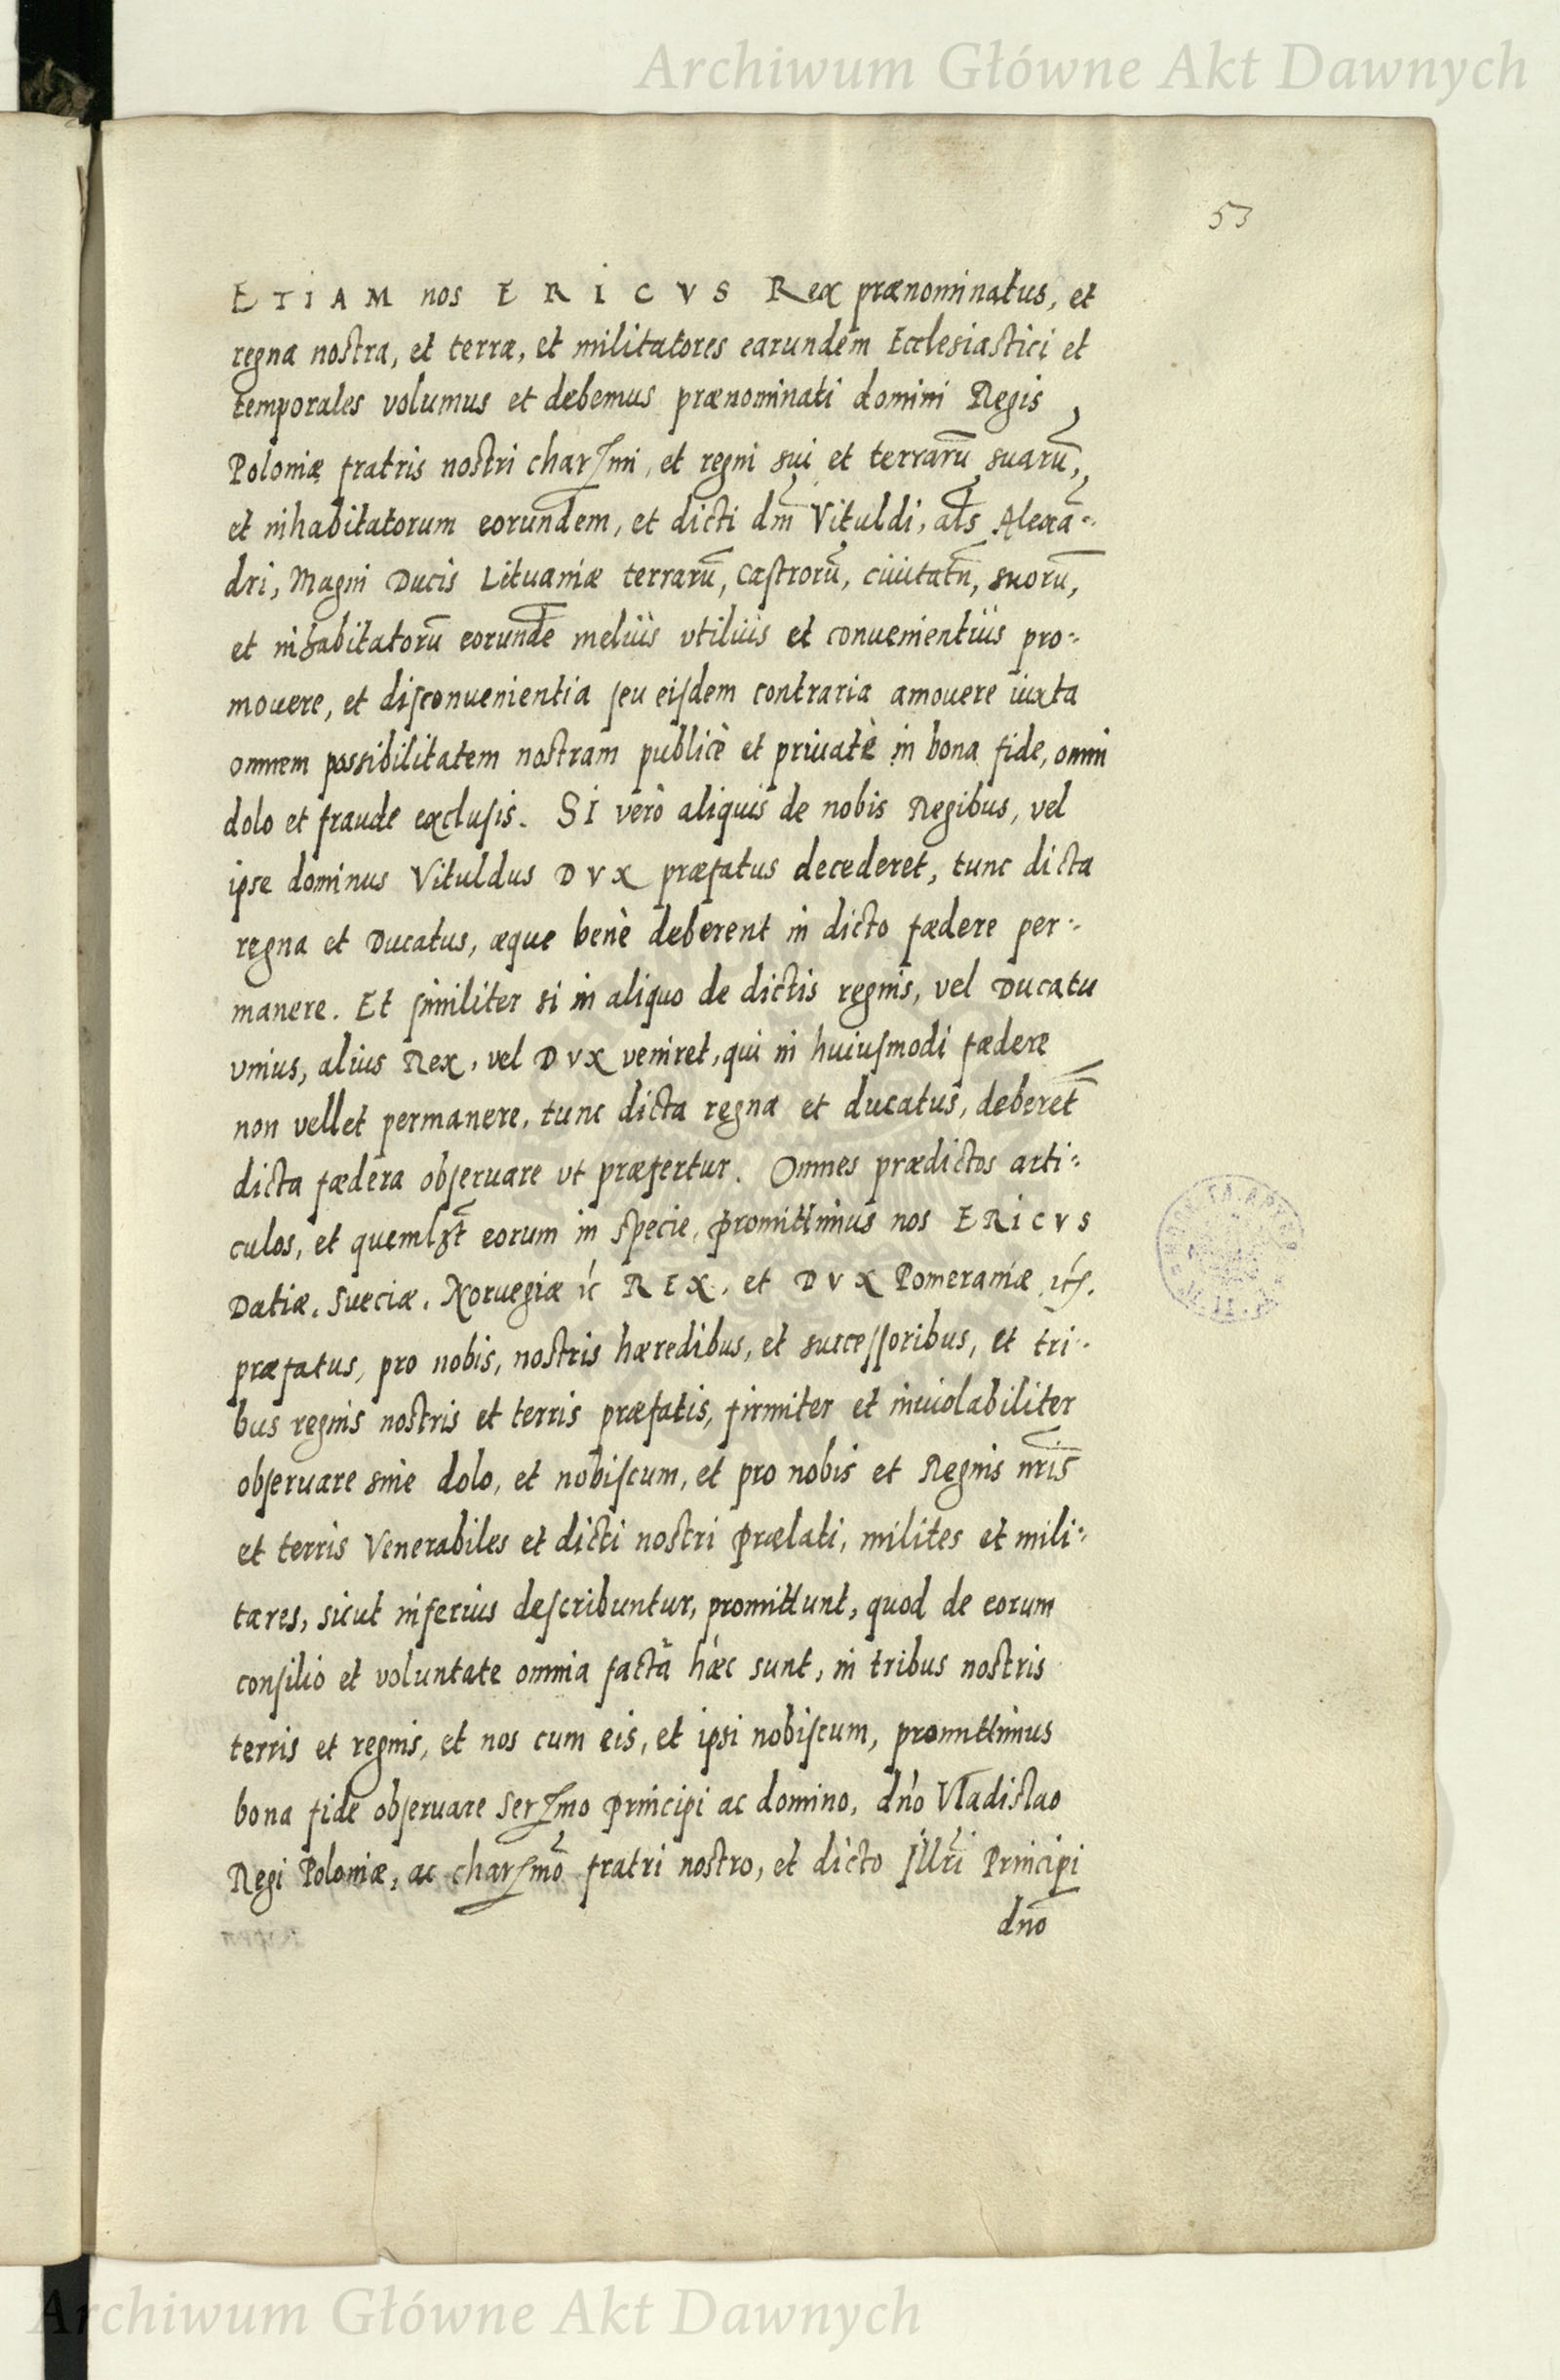 Archiwum Główne Akt Dawnych
53
ETIAM nos ERICVS Rex prænominatus, et
regna nostra, et terræ, et militatores earundem Ecclesiastici et
temporales volumus et debemus prænominati domini Regis
Poloniæ fratris nostri charismi, et regni sui et terrarū suarū,
et inhabitatorum eorundem, et dicti dni Vituldi, als Alexā-
dri, Magni Ducis Lituaniæ terrarū, castrorū, ciuitatū, suorū,
et inhabitatorū eorunde meliùs vtiliùs et conuenientiùs pro-
mouere, et disconuenientia seu eisdem contraria amouere iuxta
omnem possibilitatem nostram publicè et priuatè in bona fide, omni
dolo et fraude exclusis. SI verò aliquis de nobis Regibus, vel
ipse dominus Vituldus DVX præfatus decederet, tunc dicta
regna et Ducatus, æque benè deberent in dicto fædere per-
manere. Et similiter si in aliquo de dictis regnis, vel Ducatu
vnius, alius Rex, vel DVX veniret, qui in huiusmodi fædere
non vellet permanere, tunc dicta regna et ducatus, deberet̄
dicta fædera obseruare vt præfertur. Omnes prædictos arti-
culos, et quemlzt eorum in specie, promittimus nos ERICVS
Datiæ, Sueciæ, Noruegiæ ꝛc REX, et DVX Pomeraniæ ꝛc.
præfatus, pro nobis, nostris hæredibus, et successoribus, et tri-
bus regnis nostris et terris præfatis, firmiter et inuiolabiliter
obseruare sine dolo, et nobiscum, et pro nobis et Regnis nris
et terris Venerabiles et dicti nostri Prælati, milites et mili-
tares, sicut inferius describuntur, promittunt, quod de eorum
consilio et voluntate omnia facta hæc sunt, in tribus nostris
terris et regnis, et nos cum eis, et ipsi nobiscum, promittimus
bona fide obseruare Serismo Principi ac domino, dno Vladislao
Regi Poloniæ, ac charismo fratri nostro, et dicto Illri Principi
dno
Archiwum Główne Akt Dawnych